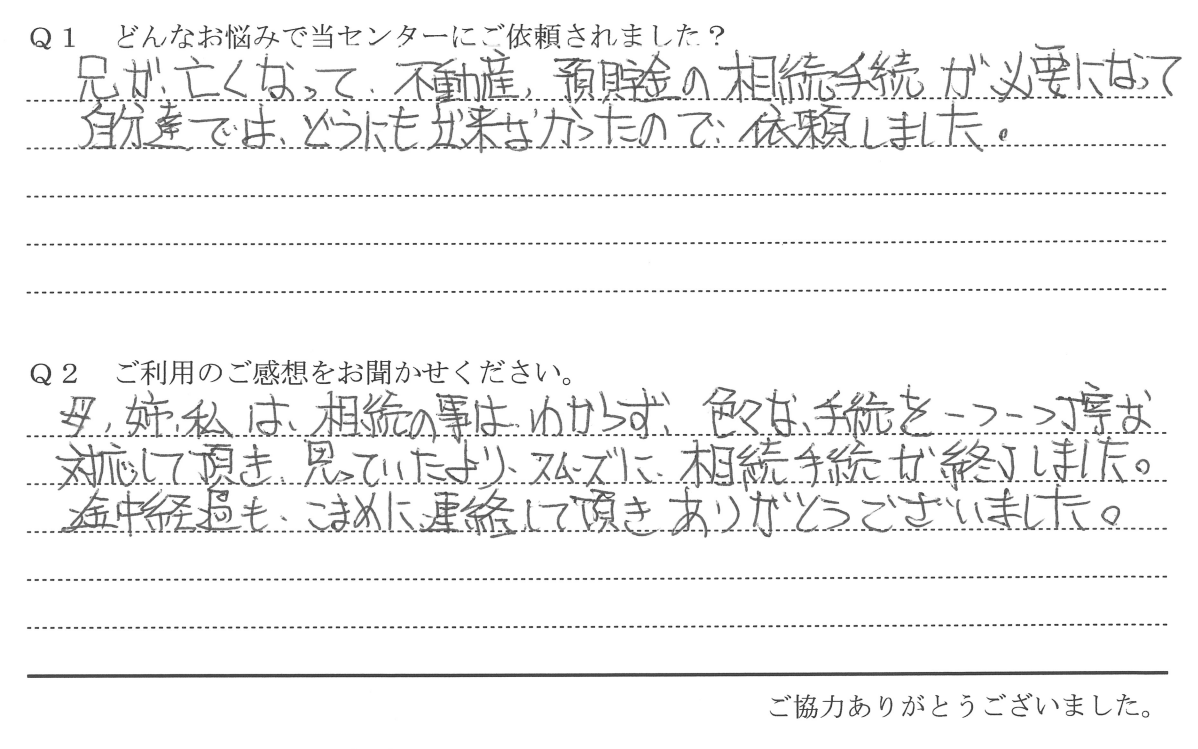 Q1 どんなお悩みで当センターにご依頼されました？
兄が、亡くなって、不動産、預貯金の相続手続が必要になって
自分達では、どうにも出来なかったので、依頼しました。
Q2 ご利用のご感想をお聞かせください。
母、姉、私は、相続の事は、わからず、色々な、手続を一つ一つ丁寧な
対応して頂き、思っていたより、スムーズに、相続手続が終了しました。
途中経過も、こまめに連絡して頂きありがとうございました。
ご協力ありがとうございました。